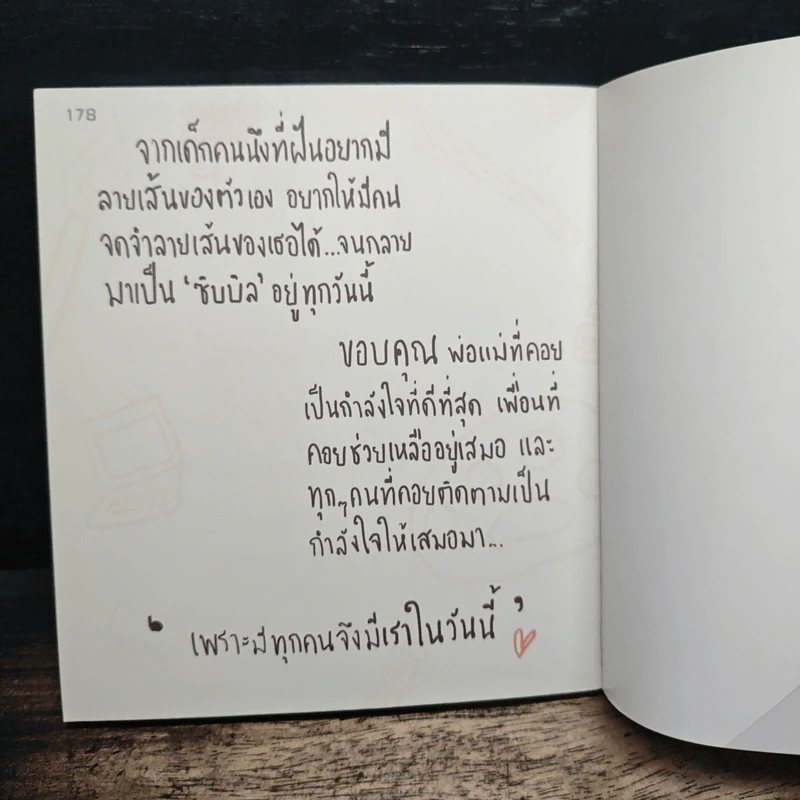 178
จากเด็กคนนึงที่ฝันอยากมี
ลายเส้นของตัวเอง อยากให้มีคน
จดจำลายเส้นของเธอได้...จนกลาย
มาเป็น ‘ซิบบิล’ อยู่ทุกวันนี้
ขอบคุณ พ่อแม่ที่คอย
เป็นกำลังใจที่ดีที่สุด เพื่อนที่
คอยช่วยเหลืออยู่เสมอ และ
ทุกๆคนที่คอยติดตามเป็น
กำลังใจให้เสมอมา...
‘ เพราะมีทุกคนจึงมีเราในวันนี้ ’